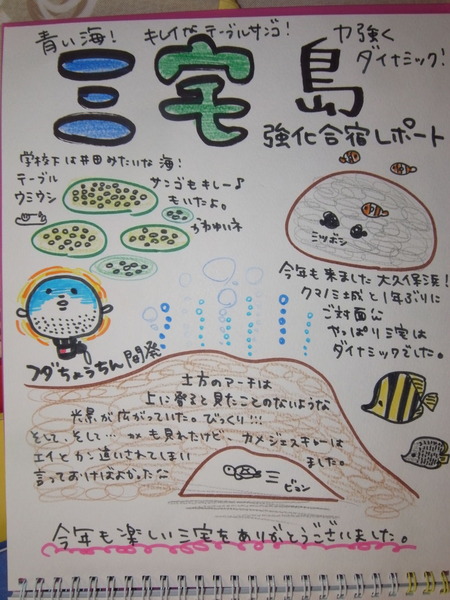 青い海！
キレイなテーブルサンゴ！
力強く
ダイナミック！
三宅島
強化合宿レポート
学校下は井田みたいな海！
テーブル
サンゴもキレー♪
ウミウシ
もいたよ。
かわゆいネ
ミツボシ
今年も来ました大久保浜！
クマノミ城と1年ぶりに
ご対面
やっぱり三宅は
ダイナミックでした。
フグちょうちん開発
土方のアーチは
上に登ると見たことのないような
光景が広がっていた。びっくり!!!
そして、そして…カメも見れたけど、カメジェスチャーは
エイとかん違いされてしまい
ました。
言っておけばよかった
ビョン
今年も楽しい三宅をありがとうございました。